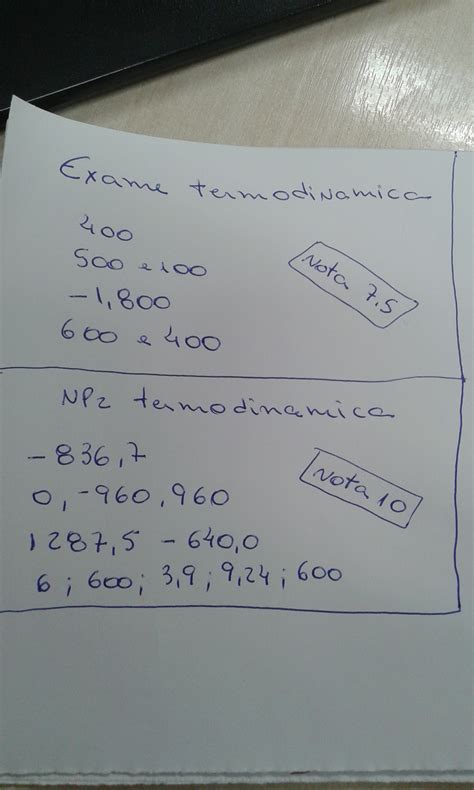 Exame termodinamica
400
500 e 100
-1,800
600 e 400
Nota 7.5
NP2 termodinamica
-836,7
0,-960,960
1287,5 - 640,0
6; 600; 3,9; 9,24; 600
Nota 10